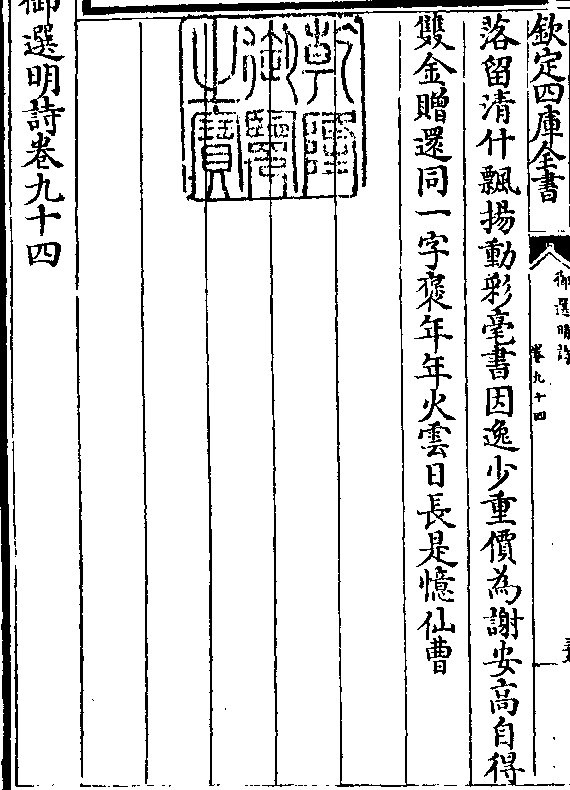 欽定四庫全書
御選明詩
卷九十四
落留清什飄揚動彩毫書因逸少重價為謝安高自得
雙金贈還同一字褒年年火雲日長是憶仙曹
乾隆御覽之寶
御選明詩卷九十四